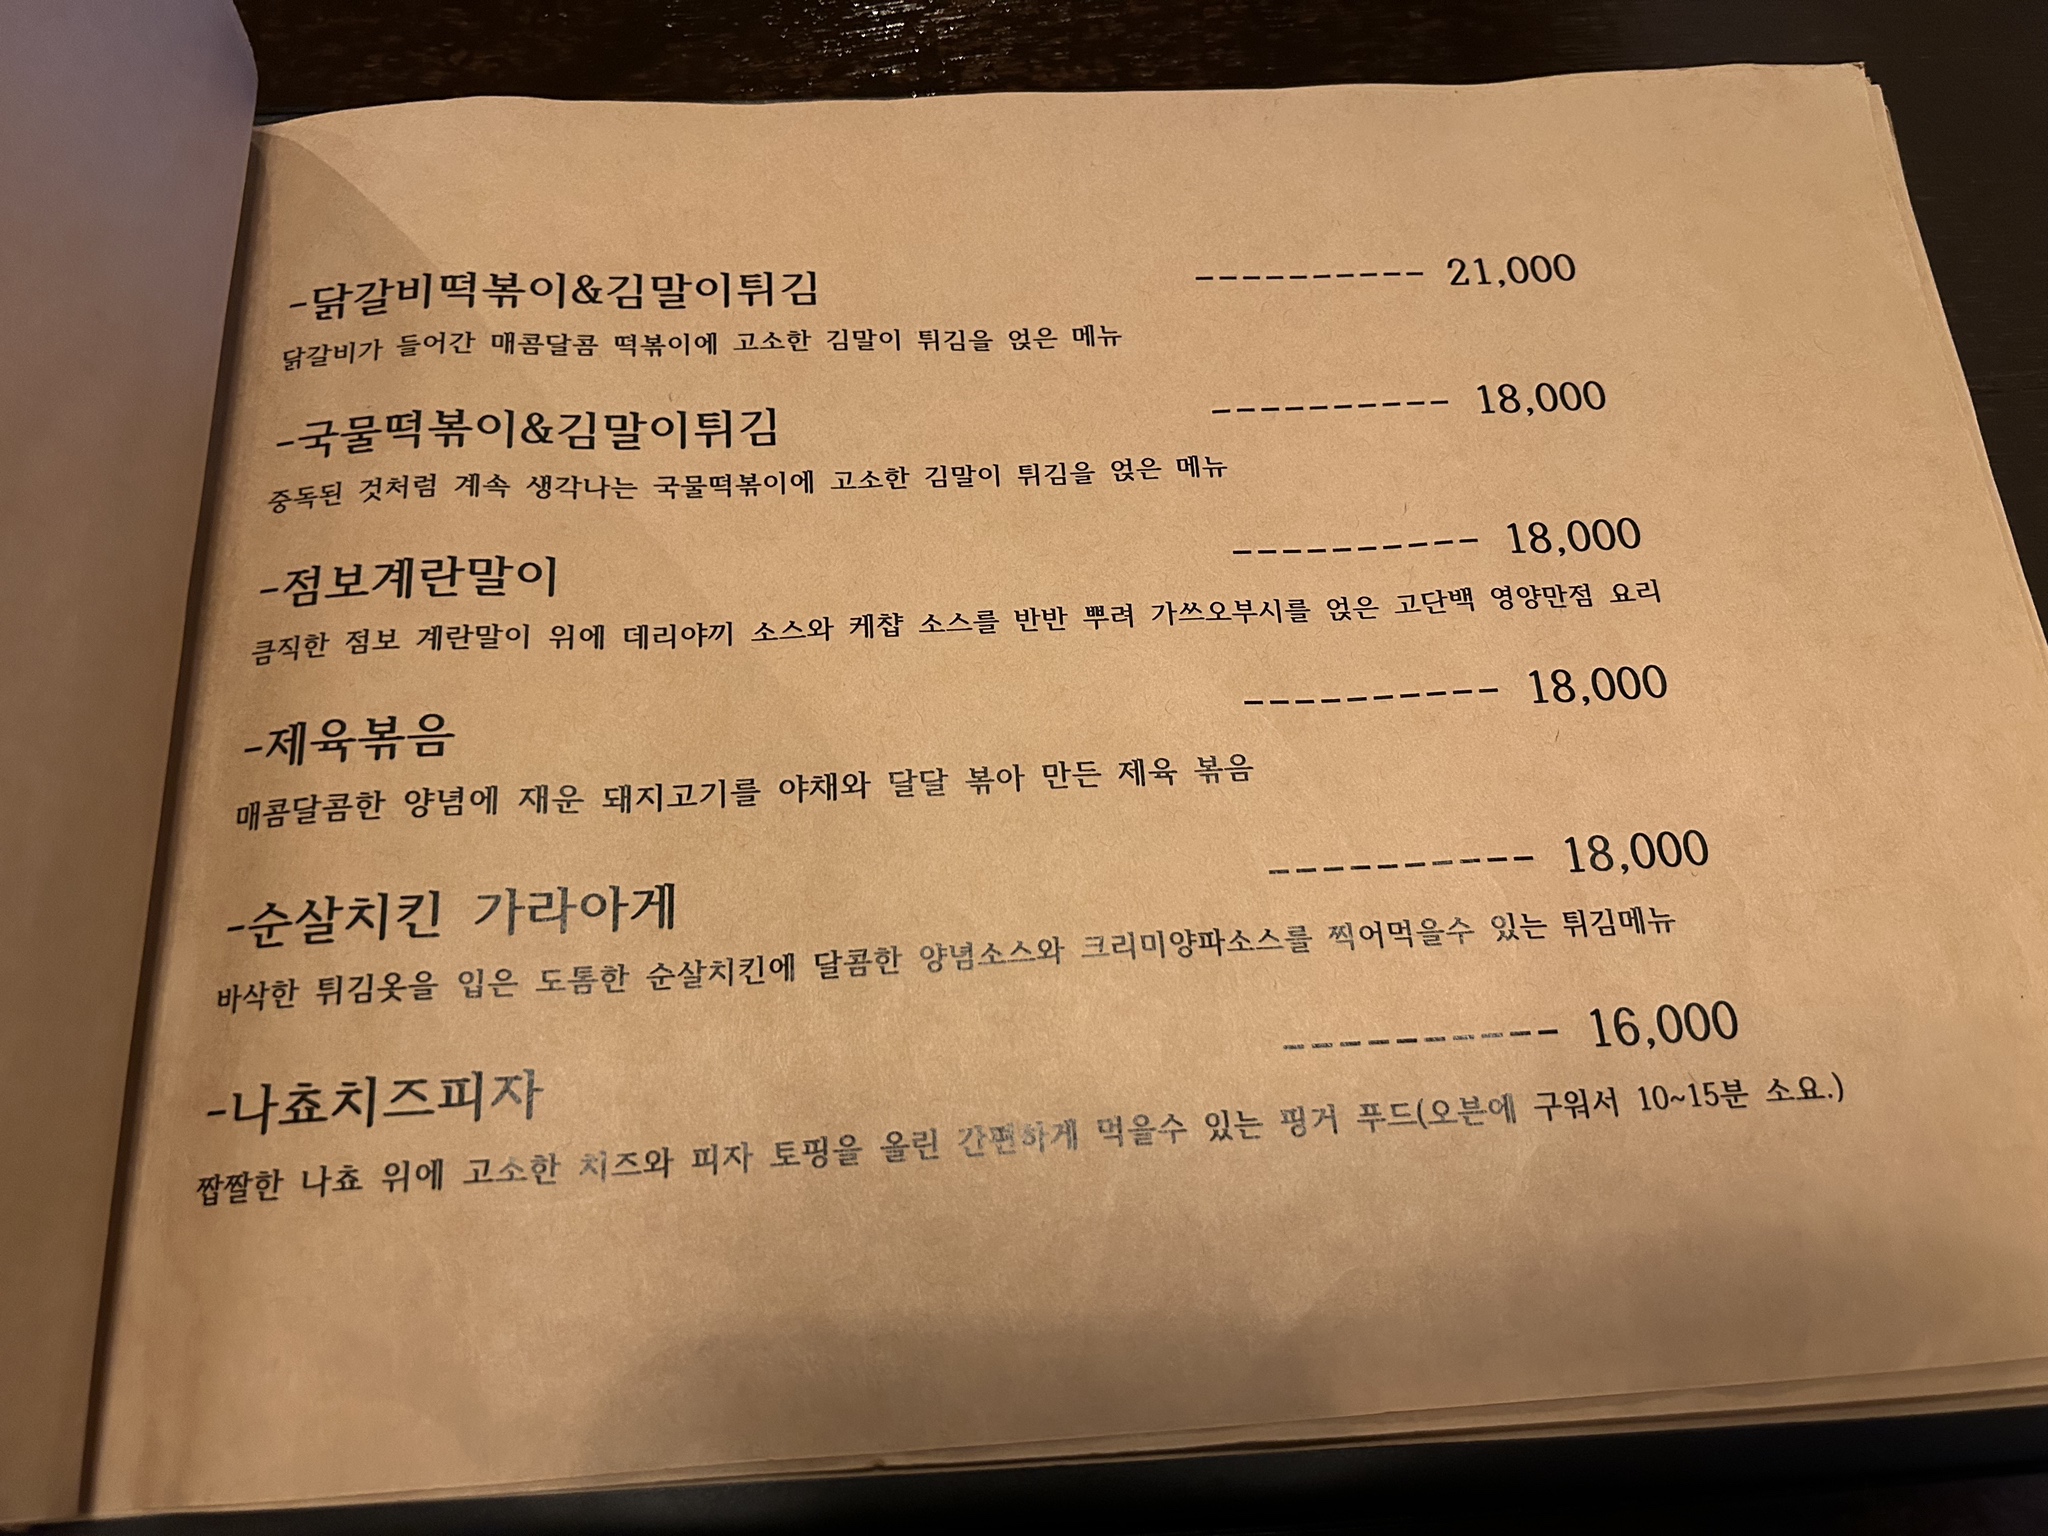 -닭갈비떡볶이&김말이튀김 ---------- 21,000
닭갈비가 들어간 매콤달콤 떡볶이에 고소한 김말이 튀김을 얹은 메뉴
-국물떡볶이&김말이튀김 ---------- 18,000
중독된 것처럼 계속 생각나는 국물떡볶이에 고소한 김말이 튀김을 얹은 메뉴
-점보계란말이 ---------- 18,000
큼직한 점보 계란말이 위에 데리야끼 소스와 케챱 소스를 반반 뿌려 가쓰오부시를 얹은 고단백 영양만점 요리
-제육볶음 ---------- 18,000
매콤달콤한 양념에 재운 돼지고기를 야채와 달달 볶아 만든 제육 볶음
-순살치킨 가라아게 ---------- 18,000
바삭한 튀김옷을 입은 도톰한 순살치킨에 달콤한 양념소스와 크리미양파소스를 찍어먹을수 있는 튀김메뉴
-나쵸치즈피자 ---------- 16,000
짭짤한 나쵸 위에 고소한 치즈와 피자 토핑을 올린 간편하게 먹을수 있는 핑거 푸드(오븐에 구워서 10~15분 소요.)